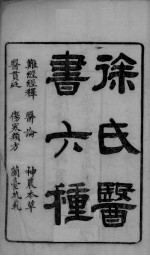 徐氏醫
書六種
難經經釋 醫論 神農本草
醫貫砭 傷寒類方 蘭臺軌範